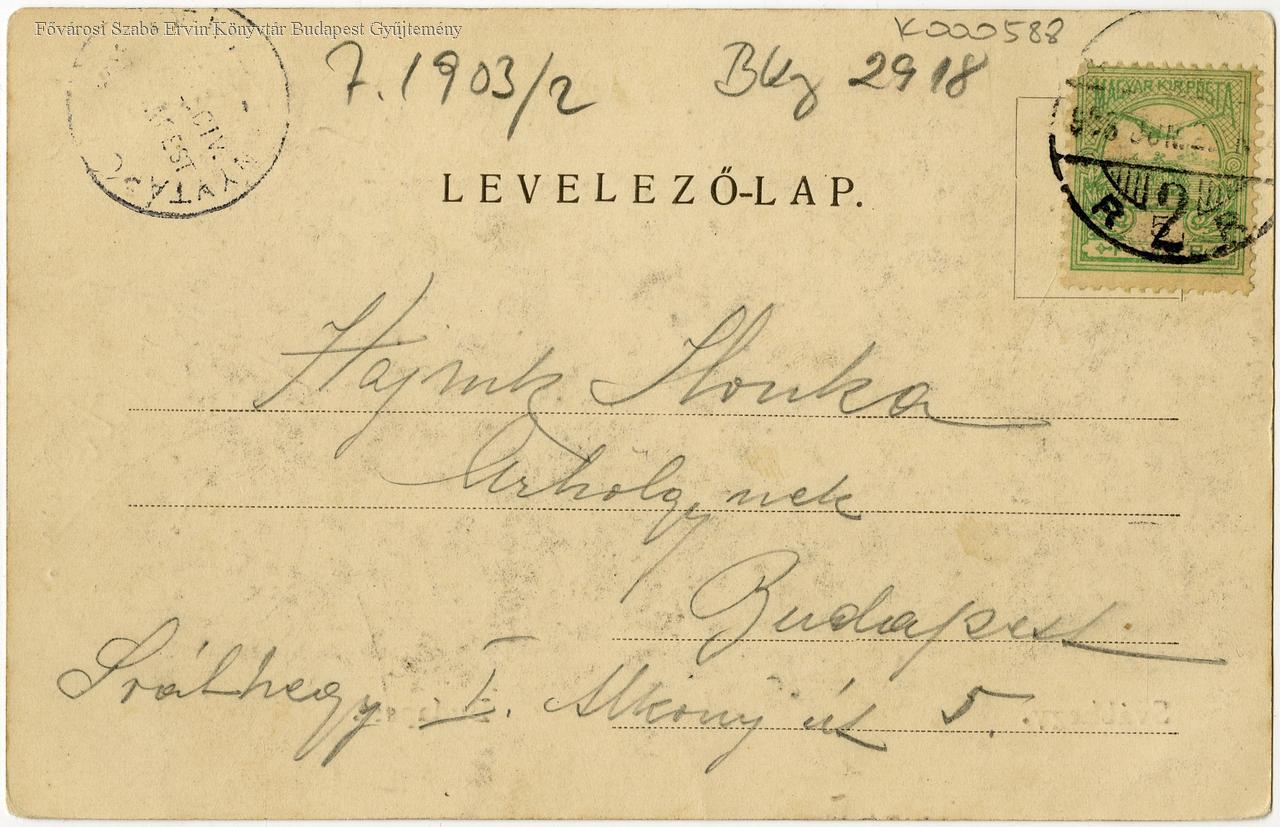 Fővárosi Szabó Ervin Könyvtár Budapest Gyűjtemény
K000588
7. 1903/2 Bky 2918
NYVTÁR
MAGYAR KIR. POSTA
JUN.
2
LEVELEZŐ-LAP.
Hajnik Ilonka
Úrhölgynek
Budapest
Svábhegy I. Alkony út 5.